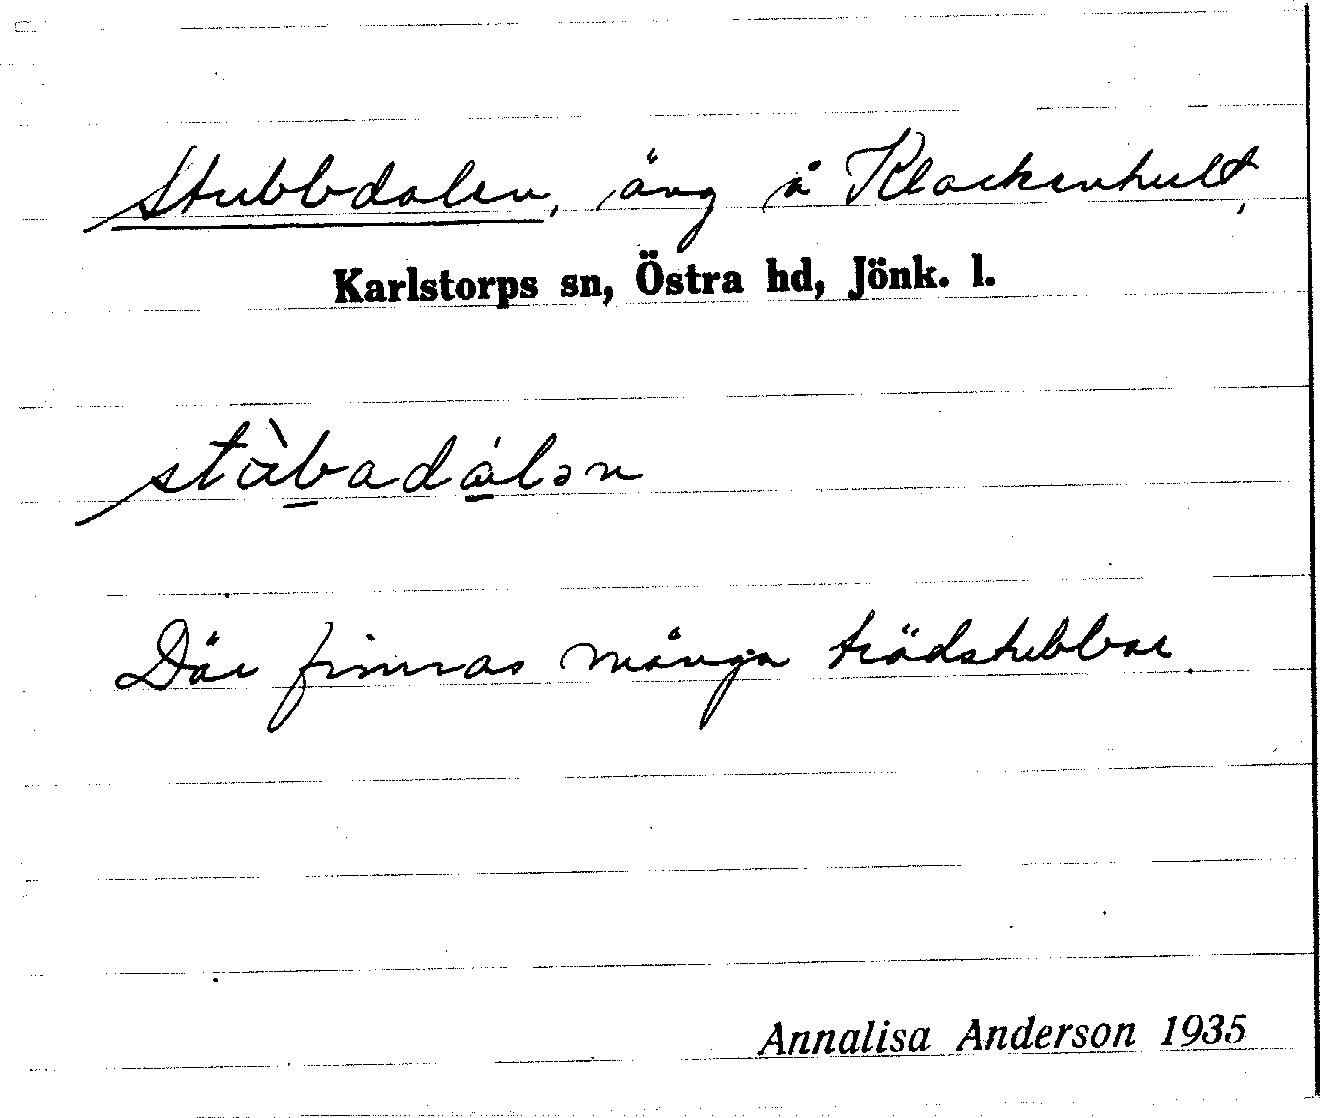 Stubbdalen, äng å Klackenhult,
Karlstorps sn, Östra hd, Jönk. l.
stàbadálən
Där finnas många trädstubbar.
Annalisa Anderson 1935